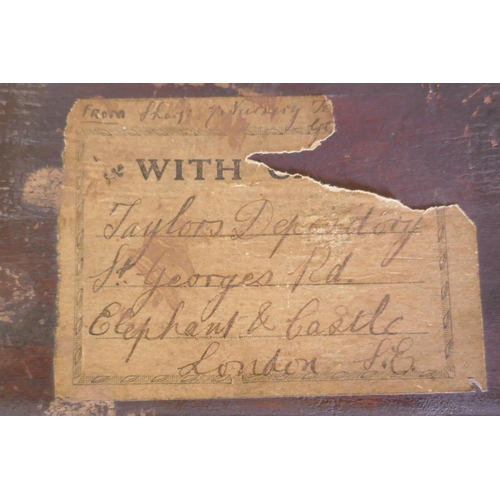 FROM
WITH C
Taylors Depository
St Georges Rd.
Elephant & Castle
London S.E.